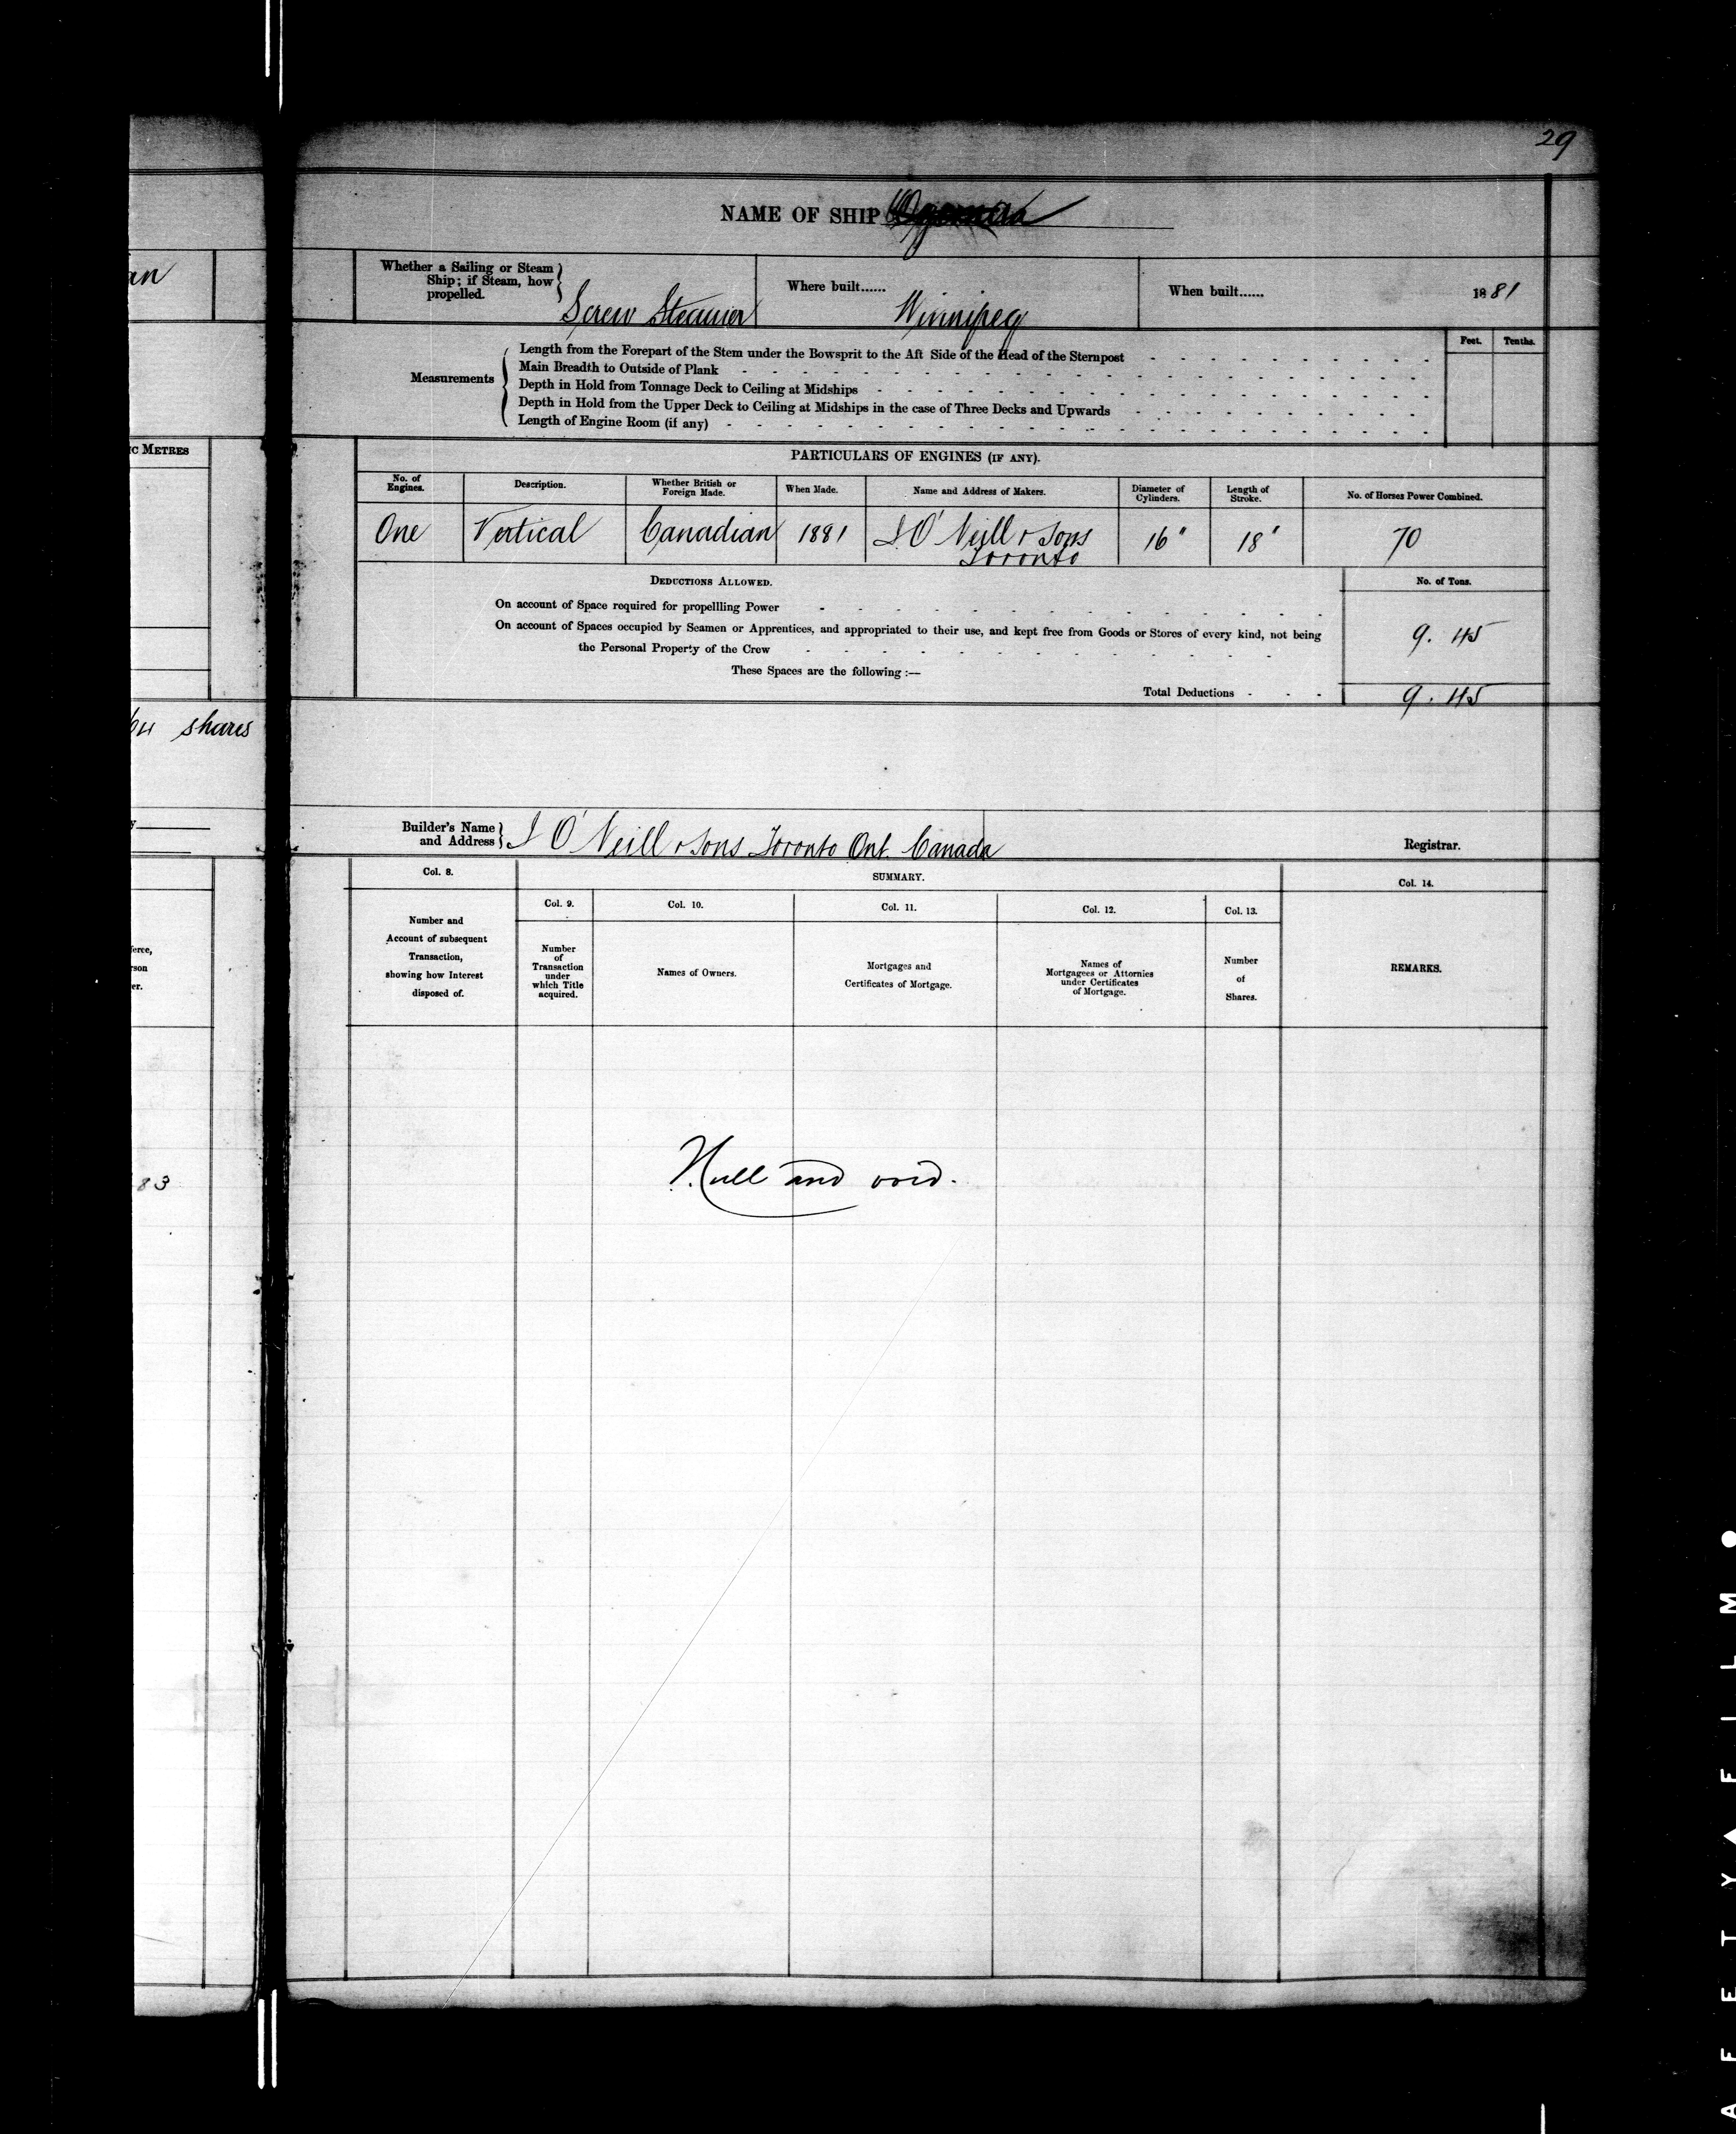 29
NAME OF SHIP
an
Whether a Sailing or Steam
Ship; if Steam, how
propelled.
Screw Steamer
Where built......
Winnipeg
When built......
1881
Feet. Tenths.
Measurements
Length from the Forepart of the Stem under the Bowsprit to the Aft Side of the Head of the Sternpost
Main Breadth to Outside of Plank
Depth in Hold from Tonnage Deck to Ceiling at Midships
Depth in Hold from the Upper Deck to Ceiling at Midships in the case of Three Decks and Upwards
Length of Engine Room (if any)
IC METRES
PARTICULARS OF ENGINES (IF ANY).
No. of
Engines.
Description.
Whether British or
Foreign Made.
When Made.
Name and Address of Makers.
Diameter of
Cylinders.
Length of
Stroke.
No. of Horses Power Combined.
One
Vertical
Canadian
1881
J O'Neill & Sons
Toronto
16"
18"
70
DEDUCTIONS ALLOWED.
No. of Tons.
On account of Space required for propellling Power
On account of Spaces occupied by Seamen or Apprentices, and appropriated to their use, and kept free from Goods or Stores of every kind, not being
the Personal Property of the Crew
9.45
These Spaces are the following :—
Total Deductions - - -
9.45
64 shares
Builder's Name
and Address
J O'Neill & Sons Toronto Ont. Canada
Registrar.
Col. 8.
SUMMARY.
Col. 14.
Col. 9.
Col. 10.
Col. 11.
Col. 12.
Col. 13.
Number and
Account of subsequent
Transaction,
showing how Interest
disposed of.
Number
of
Transaction
under
which Title
acquired.
Names of Owners.
Mortgages and
Certificates of Mortgage.
Names of
Mortgagees or Attornies
under Certificates
of Mortgage.
Number
of
Shares.
REMARKS.
feree,
rson
er.
83
Null and void.
A F E T Y ▲ F I L M ●